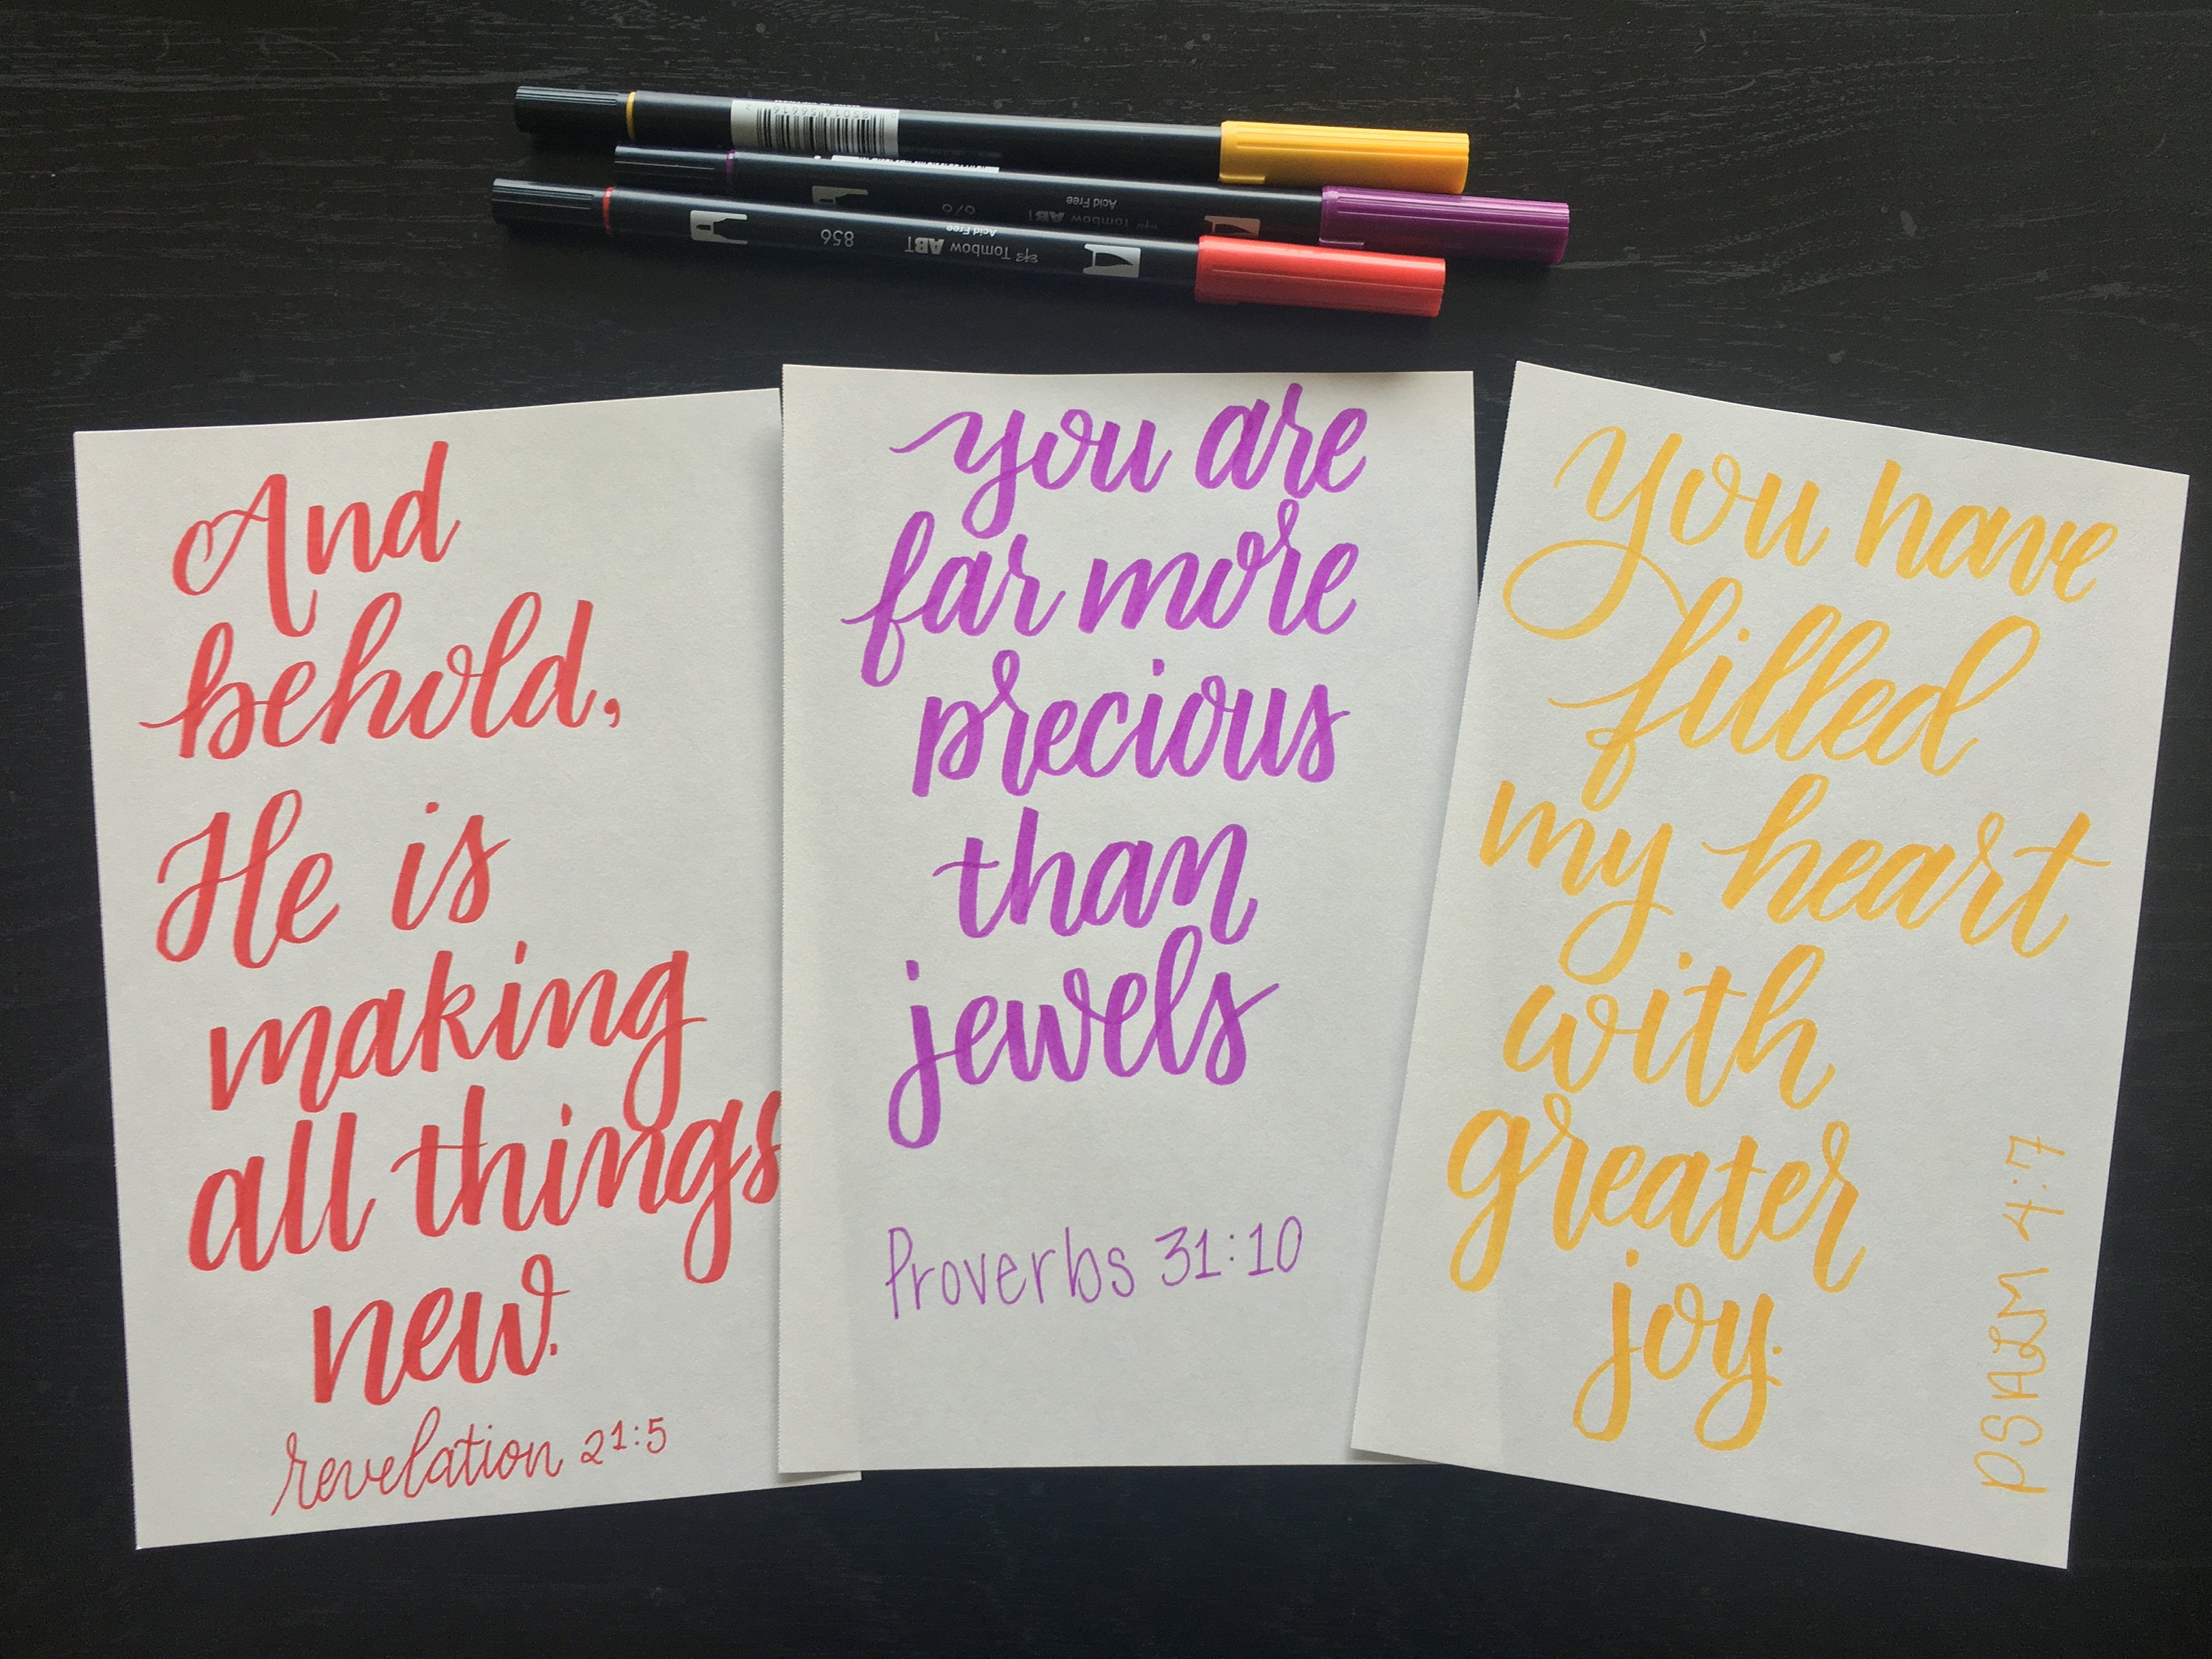 Tombow ABT
Acid Free
Tombow ABT
Acid Free
856
And
behold,
He is
making
all things
new.
revelation 21:5
you are
far more
precious
than
jewels
Proverbs 31:10
you have
filled
my heart
with
greater
joy.
PSALM 4:7